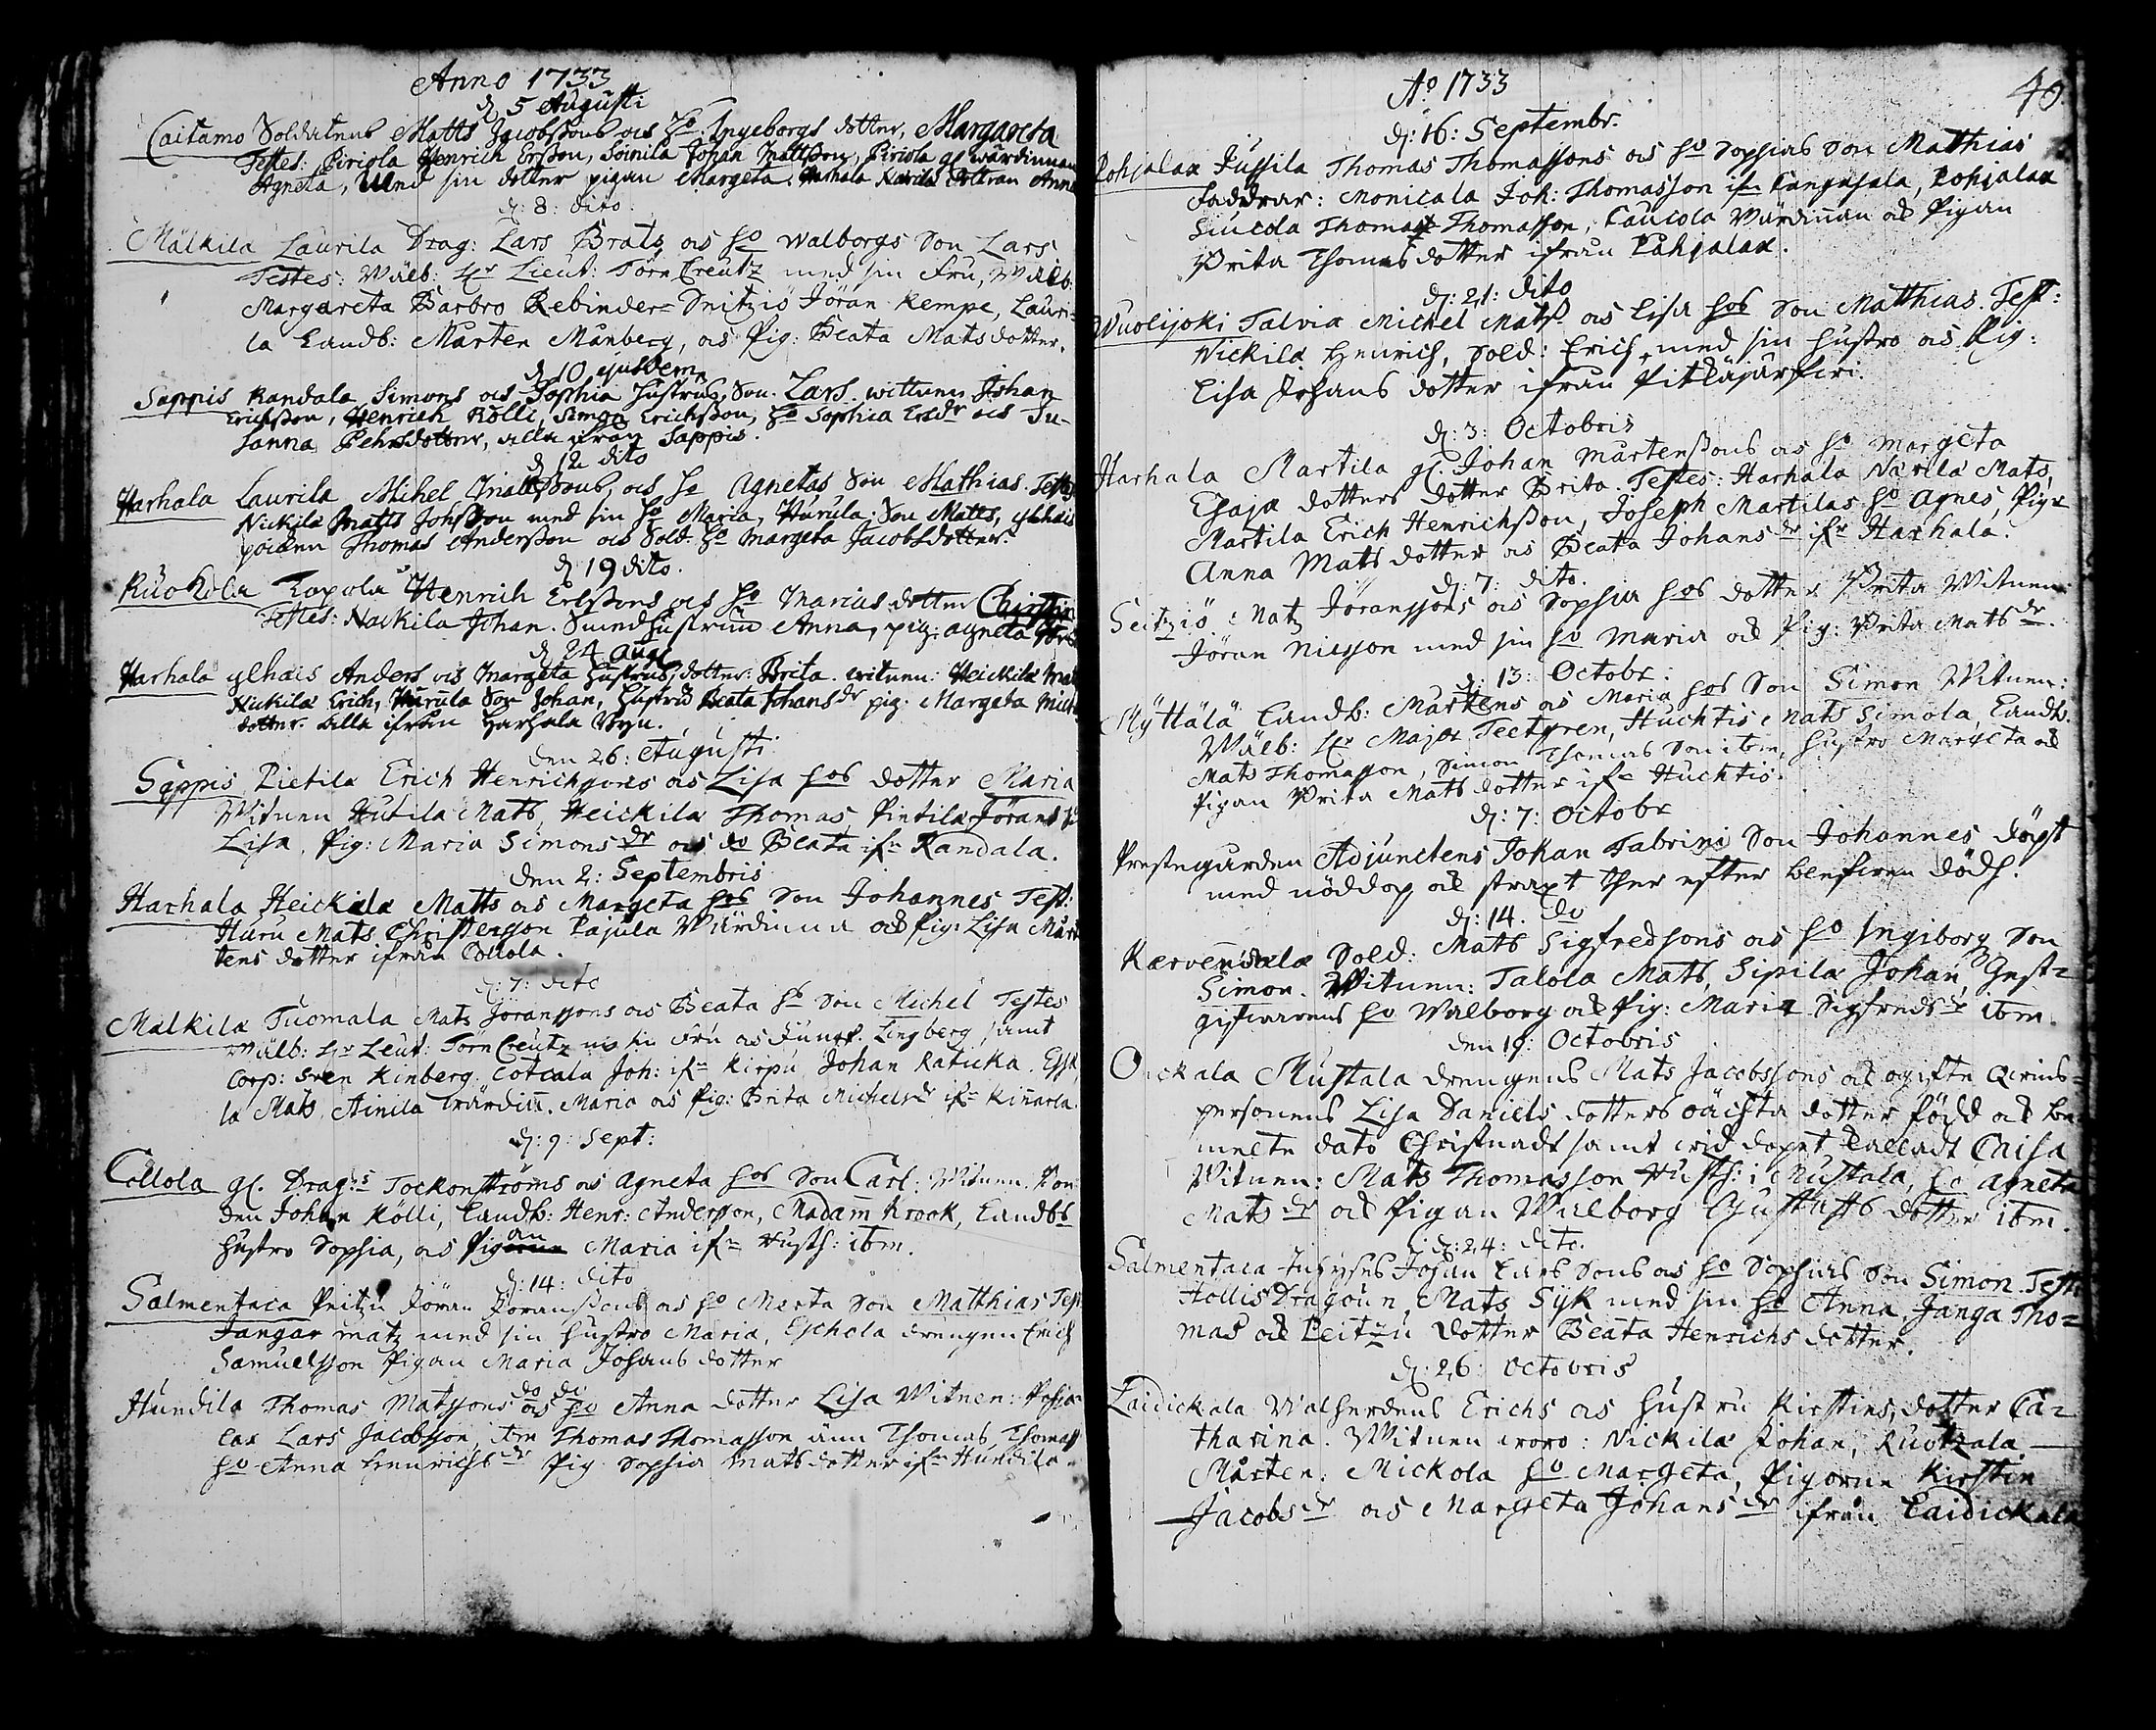 Anno 1733
d. 5 Augusti
Caitamo Soldatens Matts Jacobssons och ho. Ingeborgs dotter, Margareta
Testes: Piriola Henrich Ersson, Soinila Johan Mattsson, Piriola gl wärdinnan
Agneta, Med sin dotter pigan Margeta. Harhala Dottran Anna
d: 8: dito
Mälkilä Laurila Drag: Lars Brats och ho Walborgs Son Lars
Testes: Wälb: Hr Lieut: Törn Creutz med sin Fru, Wälb:
Margareta Barbro Rebinder= Seitziö Jöran Kempe, Lauri=
la Landb: Mårten Månberg, och Pig: Beata Matsdotter.
d 10 ejusdem
Sappis Randala Simons och Sophia Hustrus, Son. Lars. wittnen Johan
Erichsson, Henrich Kölli, Simon Erichsson, ho Sophia Ersdr och Su-
sanna Pehrsdotter, alla ifrån Sappis.
d 12 dito
Harhala Laurila Michel Mattssons och ho Agnetas Son Mathias. Testes
Nickilä Matts Johsson med sin ho Maria, Hurula Son Matts, ylhäis
poicken Thomas Andersson och Sold. ho Margeta Jacobsdotter.
d. 19 dito.
Ruokola Eopola Henrich Erssons och ho Marias dotter Christina
Testes: Nackila Johan. Smedhustrun Anna, pig: Agneta
d 24 Aug
Harhala ylhäis Anders och Margeta hustrus, dotter: Brita. witnen: Heickilä Mats
Nickilä Erich, Hurula Son Johan, Hustru Beata Johansdr pig: Margeta
dotter. alla ifrån Harhala Byn.
den 26: Augusti
Sappis Pietila Erich Henrichsons och Lisa hos dotter Maria
Witnen Hutila Mats, Heickilä Thomas, Pietila Jörans ho
Lisa, Pig: Maria Simonsdr och do Beata ifn Randala.
den 2: Septembris
Harhala Heickilä Matts och Margeta hos Son Johannes Test:
Huru Mats Christersson Pajula Wärdinna och Pig: Lisa Mår
tens dotter ifrån Collola.
d: 7: dito
Mälkilä Tuomala Mats Joranssons och Beata ho Son Michel Testes
Wälb: Hr Leut: Törn Creutz Fru och Lingberg samt
Corp: Sven Kinberg. Cotcala Joh: ifn Kirpu, Johan Raticka.
la Mats, Ainila wärdin. Maria och Pig: Brita Michelsdr ifn Kinnarla
d: 9: Sept:
Collola gl. Drag:s Tockonströms och Agneta hos Son Carl: Witnen.
den Johan Kölli, Landb: Henr: Andersson, Madam Krook, Landbs
hustro Sophia, och Pigan Maria ifn Husth: ibm.
d: 14: dito
Salmentaca Peitzu Jöran Joranssons och ho Merta Son Matthias Test
Jangar Matz med sin hustro Maria, Eschola drengen Erich
Samuelsson Pigan Maria Johans dotter
do do
Hundila Thomas Matssons och ho Anna dotter Lisa Witnen: Pohja=
lax Lars Jacobsson, itm Thomas Thomasson änn Thomas Thomass
ho Anna Henrichsdr Pig Sophia Matsdotter ifn Hundila.
Ao 1733
40.
d: 16: Septembr.
Pohjalax Jussila Thomas Thomassons och ho Sophias Son Mathias
Faddrar: Monicala Joh: Thomasson ifn Cangasala, Pohjalax
Siucola Thomas Thomasson, Caucola Wärdinnan och Pigan
Brita Thomasdotter ifrån Påhjalax.
d: 21: dito
Wuolijoki Talvia Michel Matss och Lisa hos Son Matthias. Test:
Nickila Henrich, Sold: Erich, med sin hustro och Pig:
Lisa Johans dotter ifrån Pitkäjärferi.
d: 3: Octobris
Harhala Martila gl. Johan Mårtenssons och ho Margeta
Esaja dotters dotter Brita. Testes: Harhala Närila Mats,
Martila Erich Henrichsson, Joseph Martilas ho Agnes, Pig=
Anna Mats dotter och Beata Johansdr ifr Harhala.
d: 7: dito.
Seitziö Matz Jöranssons och Sophia hos dotter Brita Witnen
Jöran Nilsson med sin ho Maria och Pig: Brita Matsdr.
d: 13: Octobr:
Myttälä Landb: Mårtens och Maria hos Son Simon Witnen:
Wälb: Hr Major Teetgren, Huchtis Mats Simola, Landb.
Mats Thomasson, Simon Thomas Son ibm, hustro Margeta och
Pigan Brita Mats dotter ifn Huchtis.
d: 7: Octobr
Prestegården Adjunctens Johan Fabrini Son Johannes döpt
med nöddop och straxt ther efter blefwen dödh.
d: 14. do
Kærvendala Sold: Mats Sigfredsons och ho Ingiborg Son
Simon. Witnen: Talola Mats, Sipilä Johan, Gest=
gifwarens ho Walborg och Pig: Maria Sigfredsdr ibm.
den 19: Octobris
Onckala Mustala drengens Mats Jacobssons och ogifte Qwins=
personens Lisa Daniels dotters oächta dotter född och be=
melte dato Christnadt samt wid dopet kalladt Caisa
Witnen: Mats Thomasson Husth: i Mustala, ho Agneta
Matsdr och Pigan Walborg Gustafs dotter ibm.
d: 24: dito.
Salmentaca Inhyses Johan Lars Sons och ho Sophias Son Simon. Test:
Hollis Dragoun, Mats Syk med sin ho Anna, Janga Tho=
mas och Peitzu dotter Beata Henrichs dotter.
d: 26: Octobris
Laidickala Walherdens Erichs och Hustru Kirstins, dotter Ca=
tharina. Witnen woro: Nickilä Johan, Ruotzala
Mårten. Mickola ho Margeta, Pigorne Kirstin
Jacobsdr och Margeta Johansdr ifrån Laidickala